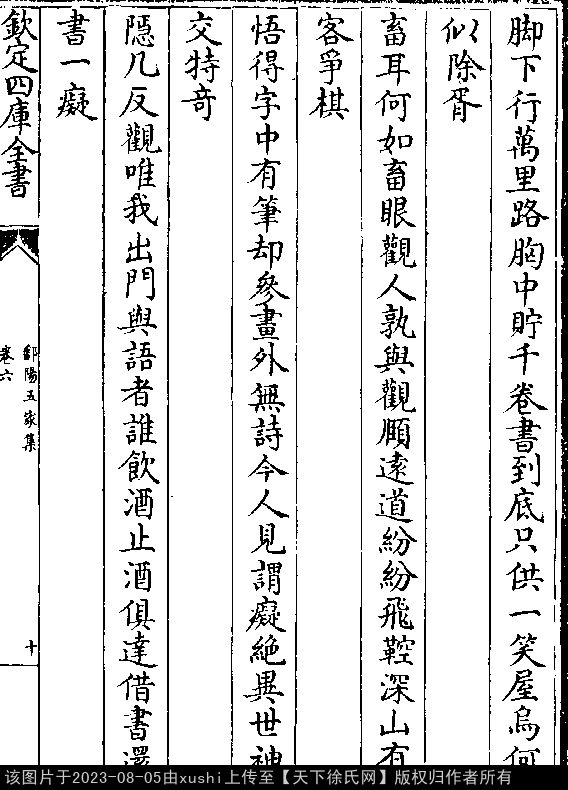 脚下行萬里路胸中貯千卷書到底只供一笑屋烏何
似除胥
畜耳何如畜眼觀人孰與觀頤遠道紛紛飛鞚深山有
客爭棋
悟得字中有筆却參畫外無詩今人見謂癡絶異世神
交特竒
隠几反觀唯我出門與語者誰飲酒止酒俱達借書還
書一癡
欽定四庫全書
鄱陽五家集
卷六
十
该图片于2023-08-05由xushi上传至【天下徐氏网】版权归作者所有